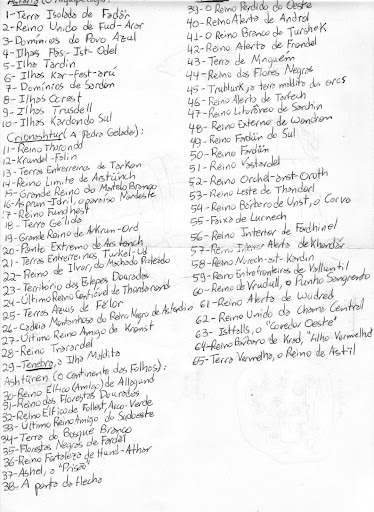 (O Arquipélago):
1- Terra Isolada de Fadân
2- Reino Unido de Fud-Aror
3- Domínios do Povo Azul
4- Ilhas Fos-Ist-Odel
5- Ilha Tardin
6- Ilhas Kar-Fest-aru
7- Domínios de Sordon
8- Ilhas Ocrest
9- Ilhas Trusdell
10- Ilhas Kardondo Sul
Crionashtur (A Pedra Gelada):
11- Reino Thorond
12- Krundel-Folin
13- Terras Entrerreinos de Torkon
14- Reino Limite de Arstünch
15- Grande Reino do Martelo Branco
16- Asprun-Idril, o paraíso Nordeste
17- Reino Fundhest
18- Terra Gélida
19- Grande Reino de Arkrum-Ord
20- Ponto Extremo de Arstanch
21- Terras Entrerreinos Turkel-Ud
22- Reino de Ilvar, do Machado Prateado
23- Território das Estepes Douradas
24- Último Reino Confiável de Thordarand
25- Terras Azuis de Félor
26- Cadeia Montanhosa do Reino Negro de Actardin
27- Último Reino Amigo de Kronst
28- Reino Trarardel
29- Tenebra, a Ilha Maldita
Ashtüren (o Continente das Folhas):
30- Reino Élfico (Amigo) de Allagund
31- Reino das Florestas Douradas
32- Reino Élfico de Follest, Arco-Verde
33- Último Reino Amigo do Sudoeste
34- Terra do Bosque Branco
35- Florestas Negras de Fardel
36- Reino Fortaleza de Hund-Athor
37- Ashel, a "Prisão"
38- A ponta da flecha
39- O Reino Perdido do Oeste
40- Reino Alerta de Androl
41- O Reino Branco de Turshek
42- Reino Alerta de Frondel
43- Terra de Ninguém
44- Reino das Flores Negras
45- Trublurk, a terra maldita dos orcs
46- Reino Alerta de Tarfech
47- Reino Litorâneo de Sarchin
48- Reino Externo de Wandrom
49- Reino Fardün do Sul
50- Reino Fardün
51- Reino Vastardel
52- Reino Orchid-anst-Oroth
53- Reino Leste de Thandorl
54- Reino Bárbaro de Unst, o Corvo
55- Faixa de Lurnech
56- Reino Interior de Fardhinel
57- Reino Interior Alerta de Khandar
58- Reino Nurech-ast-Kardin
59- Reino Entrefronteiras de Valluntil
60- Reino de Vrudull, o Punho Sangrento
61- Reino Alerta de Wudred
62- Reino Unido da Chama Central
63- Istfalls, o "Corredor Oeste"
64- Reino Bárbaro de Krad, "Filho Vermelho"
65- Terra Vermelha, o Reino de Astil